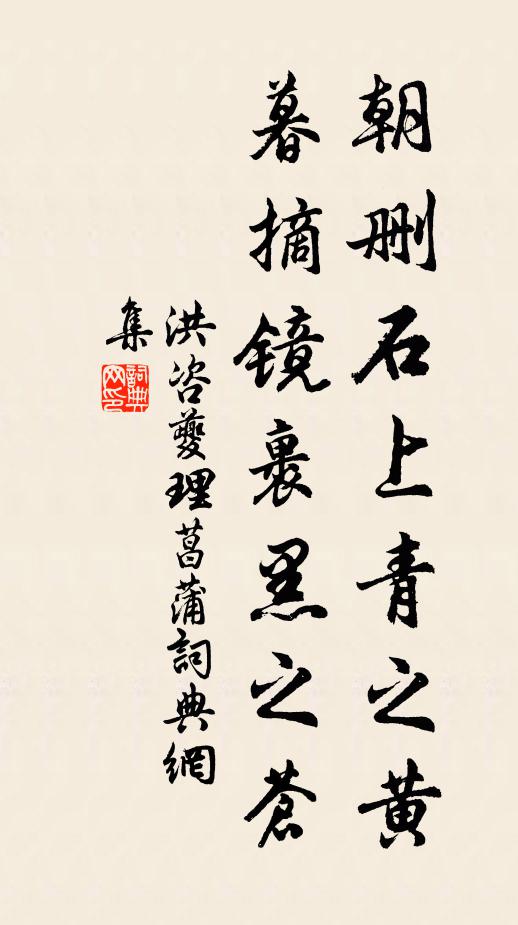 朝删石上青之黄
暮摘镜裹黑之苍
洪咨夔理菖蒲詞典網
集
詞典
网印